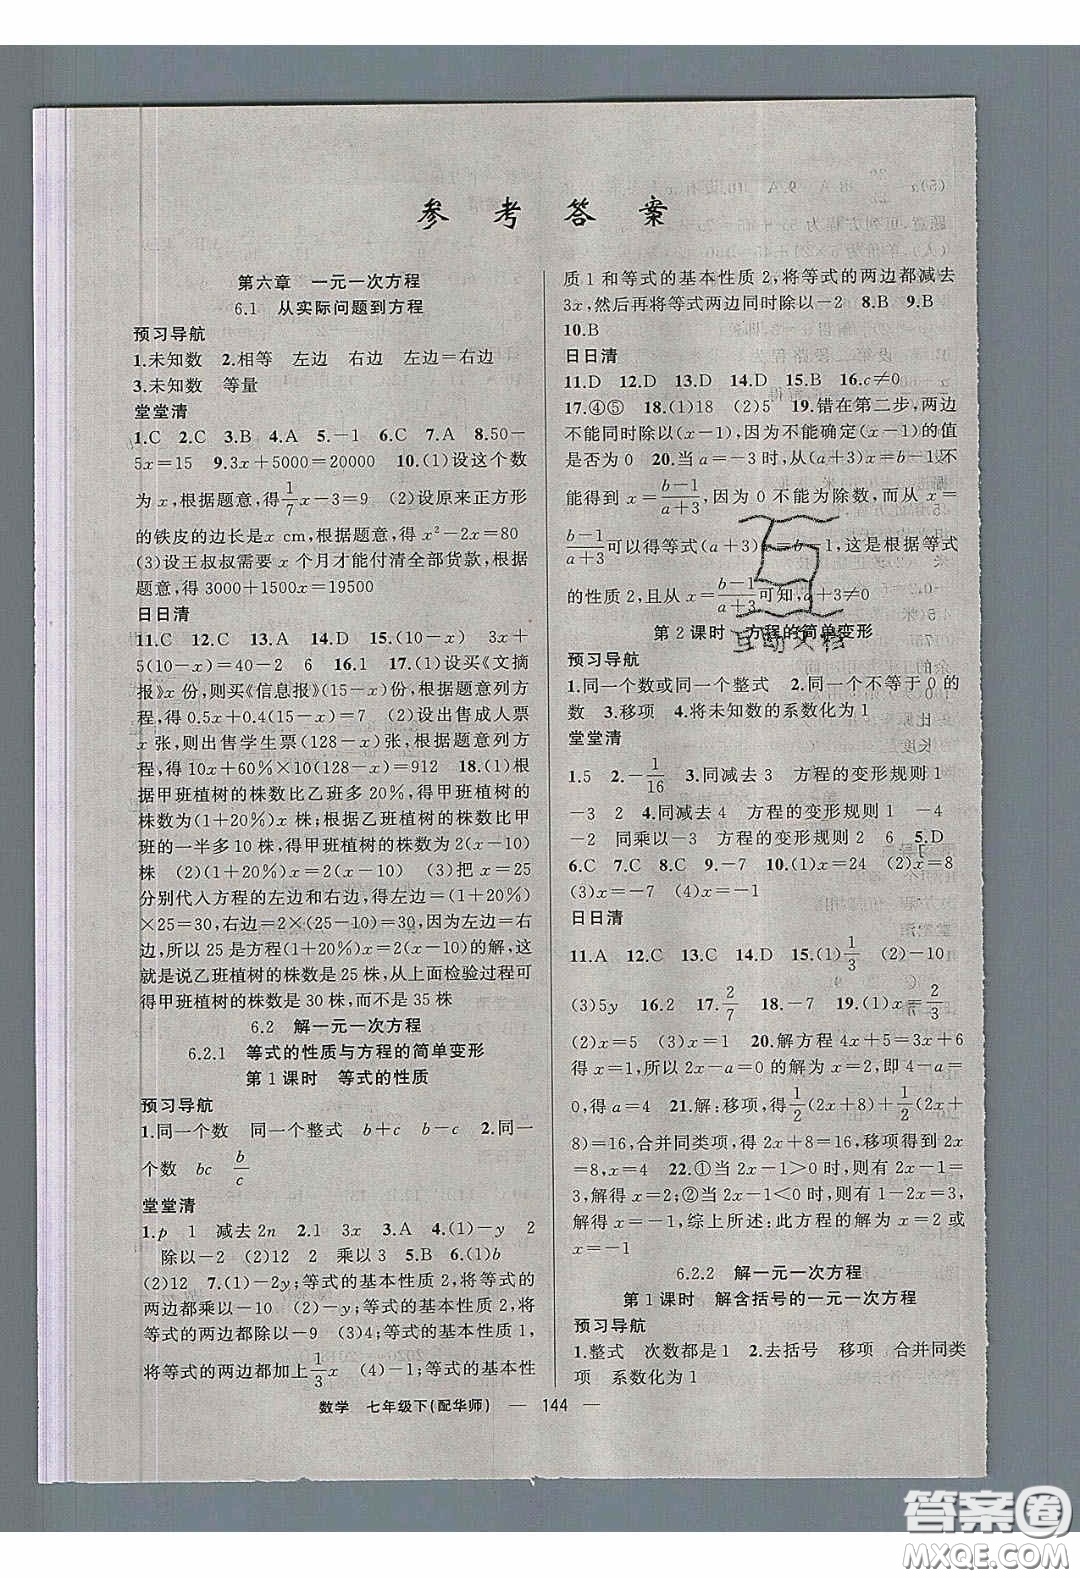 参考答案
第六章　一元一次方程
6.1　从实际问题到方程
预习导航
1.未知数　2.相等　左边　右边　左边＝右边
3.未知数　等量
堂堂清
1.C　2.C　3.B　4.A　5.－1　6.C　7.A　8.50－
5x＝15　9.3x＋5000＝20000　10.(1)设这个数
为x,根据题意,得1/7x－3＝9　(2)设原来正方形
的铁皮的边长是x cm,根据题意,得 x²－2x＝80
(3)设王叔叔需要 x 个月才能付清全部货款,根据
题意,得 3000＋1500x＝19500
日日清
11.C　12.C　13.A　14.D　15.(10－x)　3x＋
＋5(10－x)＝40－2　6　16.1　17.(1)设买《文摘
报》x份,则买《信息报》(15－x)份,根据题意列方
程,得 0.5x＋0.4(15－x)＝7　(2)设出售成人票
x 张,则出售学生票(128－x)张,根据题意列方
程,得 10x＋60％×10(128－x)＝912　18.(1)根
据甲班植树的株数比乙班多 20％,得甲班植树的
株数为(1＋20％)x 株；根据乙班植树的株数比甲
班的一半多10株,得甲班植树的株数为2(x－10)
株　(2)(1＋20％)x＝2(x－10)　(3)把 x＝25
分别代人方程的左边和右边,得左边＝(1＋20％)
×25＝30,右边＝2×(25－10)＝30,因为左边＝右
边,所以 25 是方程(1＋20％)x＝2(x－10)的解,这
就是说乙班植树的株数是 25 株,从上面检验过程可
得甲班植树的株数是 30 株,而不是 35 株
6.2　解一元一次方程
6.2.1　等式的性质与方程的简单变形
第 1 课时　等式的性质
预习导航
1.同一个数　同一个整式　b＋c　b－c　2.同一
个数　bc　b/c
堂堂清
1.p　1　减去2n　2.1　3x　3.A　4.(1)－y　2
除以－2　(2)12　2　乘以 3　5.B　6.(1)b
(2)12　7.(1)－2y；等式的基本性质 2,将等式的
两边都乘以－10　(2)－y；等式的基本性质 2,将
等式的两边都除以－9　(3)4；等式的基本性质 1,
将等式的两边都加上1/3x　(4)－1；等式的基本性
质 1 和等式的基本性质 2,将等式的两边都减去
3x,然后再将等式两边同时除以－2　8.B　9.B
10.B
日日清
11.D　12.D　13.D　14.D　15.B　16.c≠0
17.④⑤　18.(1)18　(2)5　19.错在第二步,两边
不能同时除以(x－1),因为不能确定(x－1)的值
是否为 0　20.当 a＝－3 时,从(a＋3)x＝b－1不
能得到 x＝b－1/a＋3,因为 0 不能为除数,而从 x＝
b－1/a＋3可以得等式(a＋3)x＝b－1,这是根据等式
的性质 2,且从 x＝b－1/a＋3可知,a＋3≠0
第 2 课时　方程的简单变形
预习导航
1.同一个数或同一个整式　2.同一个不等于 0 的
数　3.移项　4.将未知数的系数化为 1
堂堂清
1.5　2.－1/16　3.同减去 3　方程的变形规则 1
－3　2　4.同减去 4　方程的变形规则 1　－4
－2　同乘以－3　方程的变形规则 2　6　5.D
6.C　7.C　8.C　9.C　10.(1)x＝24　(2)x＝8
(3)x＝－7　(4)x＝－1
日日清
11.A　12.C　13.C　14.D　15.(1)1/3　(2)－10
(3)5y　16.2　17.2/7　18.－7　19.(1)x＝2/3
(2)x＝5　(3)x＝1　20.解方程 4x＋5＝3x＋6
得:x＝1,所以 2x－a＝0 的解为 x＝2,即 4－a＝
0,得 a＝4　21.解:移项,得1/2(2x＋8)＋1/2(2x＋
8)＝16,合并同类项,得 2x＋8＝16,移项得到 2x
＝8,x＝4　22.①当 2x－1＞0 时,则有 2x－1＝
3,解得 x＝2；②当 2x－1＜0 时,则有 2x－1＝－3,
解得 x＝－1,综上所述:此方程的解为 x＝2 或
x＝－1
6.2.2　解一元一次方程
第 1 课时　解含括号的一元一次方程
预习导航
1.整式　次数都是 1　2.去括号　移项　合并同类
项　系数化为 1
数学　七年级下(配华师)　— 144 —
互动文档
答案圈
MXQE.COM